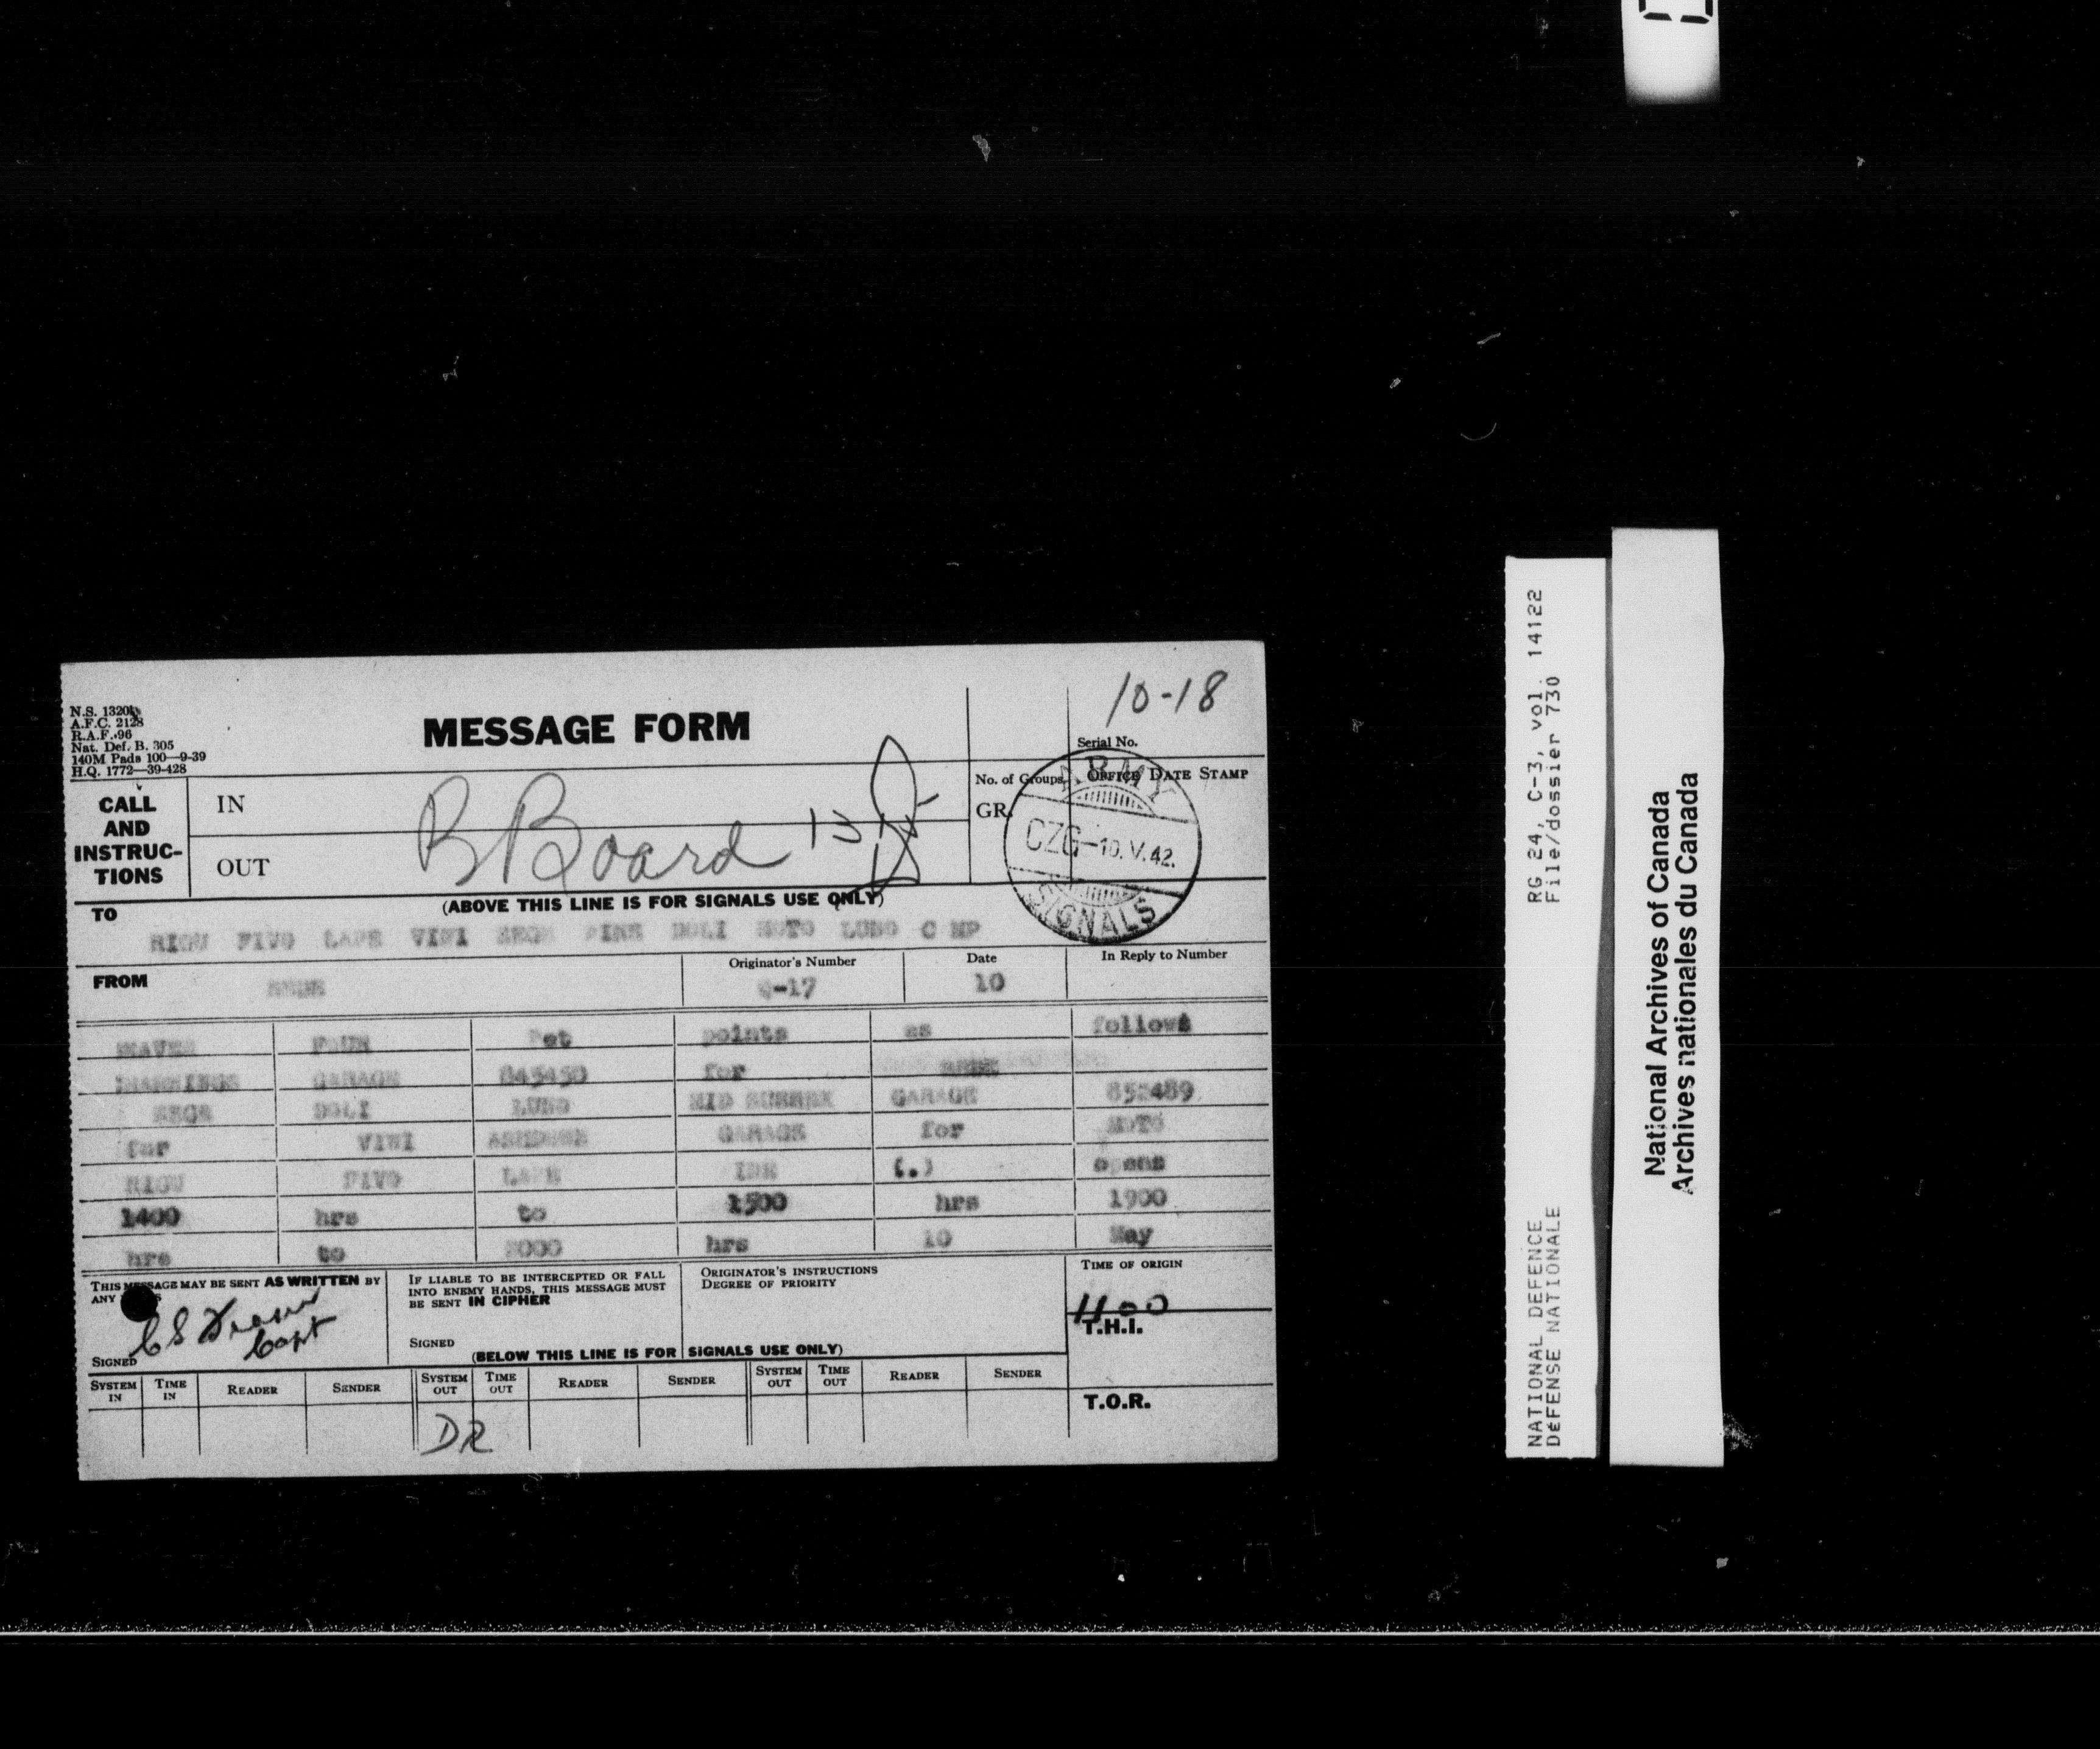 10-18
N.S. 1320
A.F.C. 2128
R.A.F. 96
Nat. Def. B. 305
140M Pads 100—9-39
H.Q. 1772—39-428
MESSAGE FORM
Serial No.
CALL AND INSTRUC-TIONS
IN
OUT
B Board
No. of Groups
GR.
OFFICE DATE STAMP
ARMY
CZG-10.V.42.
SIGNALS
(ABOVE THIS LINE IS FOR SIGNALS USE ONLY)
TO
RIGU FIVO LAPE VIWI SEGS PINE DOLI MOTO LUNO C MP
FROM
Originator's Number
Q-17
Date
10
In Reply to Number
FOUR Pet points as follows
GARAGE 845450 for
DOLI MID SUSSEX GARAGE 852489
for VIWI GARAGE for MOTO
FIVO (.) opens
1400 hrs to 1500 hrs 1900
hrs to 2000 hrs 10 May
THIS MESSAGE MAY BE SENT AS WRITTEN BY ANY
Capt
SIGNED
IF LIABLE TO BE INTERCEPTED OR FALL INTO ENEMY HANDS, THIS MESSAGE MUST BE SENT IN CIPHER
SIGNED
ORIGINATOR'S INSTRUCTIONS
DEGREE OF PRIORITY
TIME OF ORIGIN
1100
T.H.I.
(BELOW THIS LINE IS FOR SIGNALS USE ONLY)
SYSTEM IN TIME IN READER SENDER SYSTEM OUT TIME OUT READER SENDER SYSTEM OUT TIME OUT READER SENDER
DR
T.O.R.
RG 24, C-3, vol. 14122
File/dossier 730
NATIONAL DEFENCE
DéFENSE NATIONALE
National Archives of Canada
Archives nationales du Canada